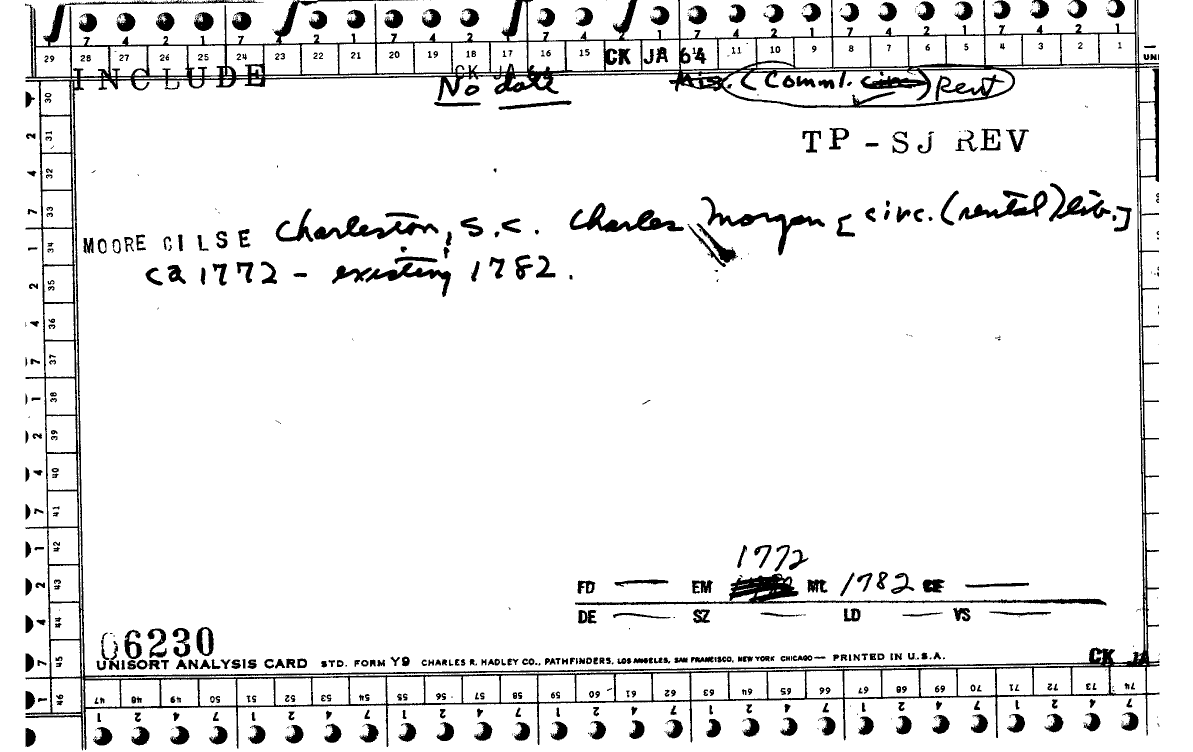 7 4 2 1 7 4 2 1 7 4 2 1 7 4 2 1 7 4 2 1 7 4 2 1
29 28 27 26 25 24 23 22 21 20 19 18 17 16 15 CK JA 64 11 10 9 8 7 6 5 4 3 2 1
INCLUDE No date His. (Comml. circ.) Rent
TP - SJ REV
MOORE CILSE Charleston, S.C. Charles Morgan [circ. (rental) lib.]
ca 1772 - existing 1782.
1772
FD — EM ML 1782 CE —
DE — SZ — LD — VS —
06230
UNISORT ANALYSIS CARD STD. FORM Y9 CHARLES R. HADLEY CO., PATHFINDERS, LOS ANGELES, SAN FRANCISCO, NEW YORK CHICAGO— PRINTED IN U.S.A. CK JA
47 48 49 50 51 52 53 54 55 56 57 58 59 60 61 62 63 64 65 66 67 68 69 70 71 72 73 74
1 2 4 7 1 2 4 7 1 2 4 7 1 2 4 7 1 2 4 7 1 2 4 7 1 2 4 7